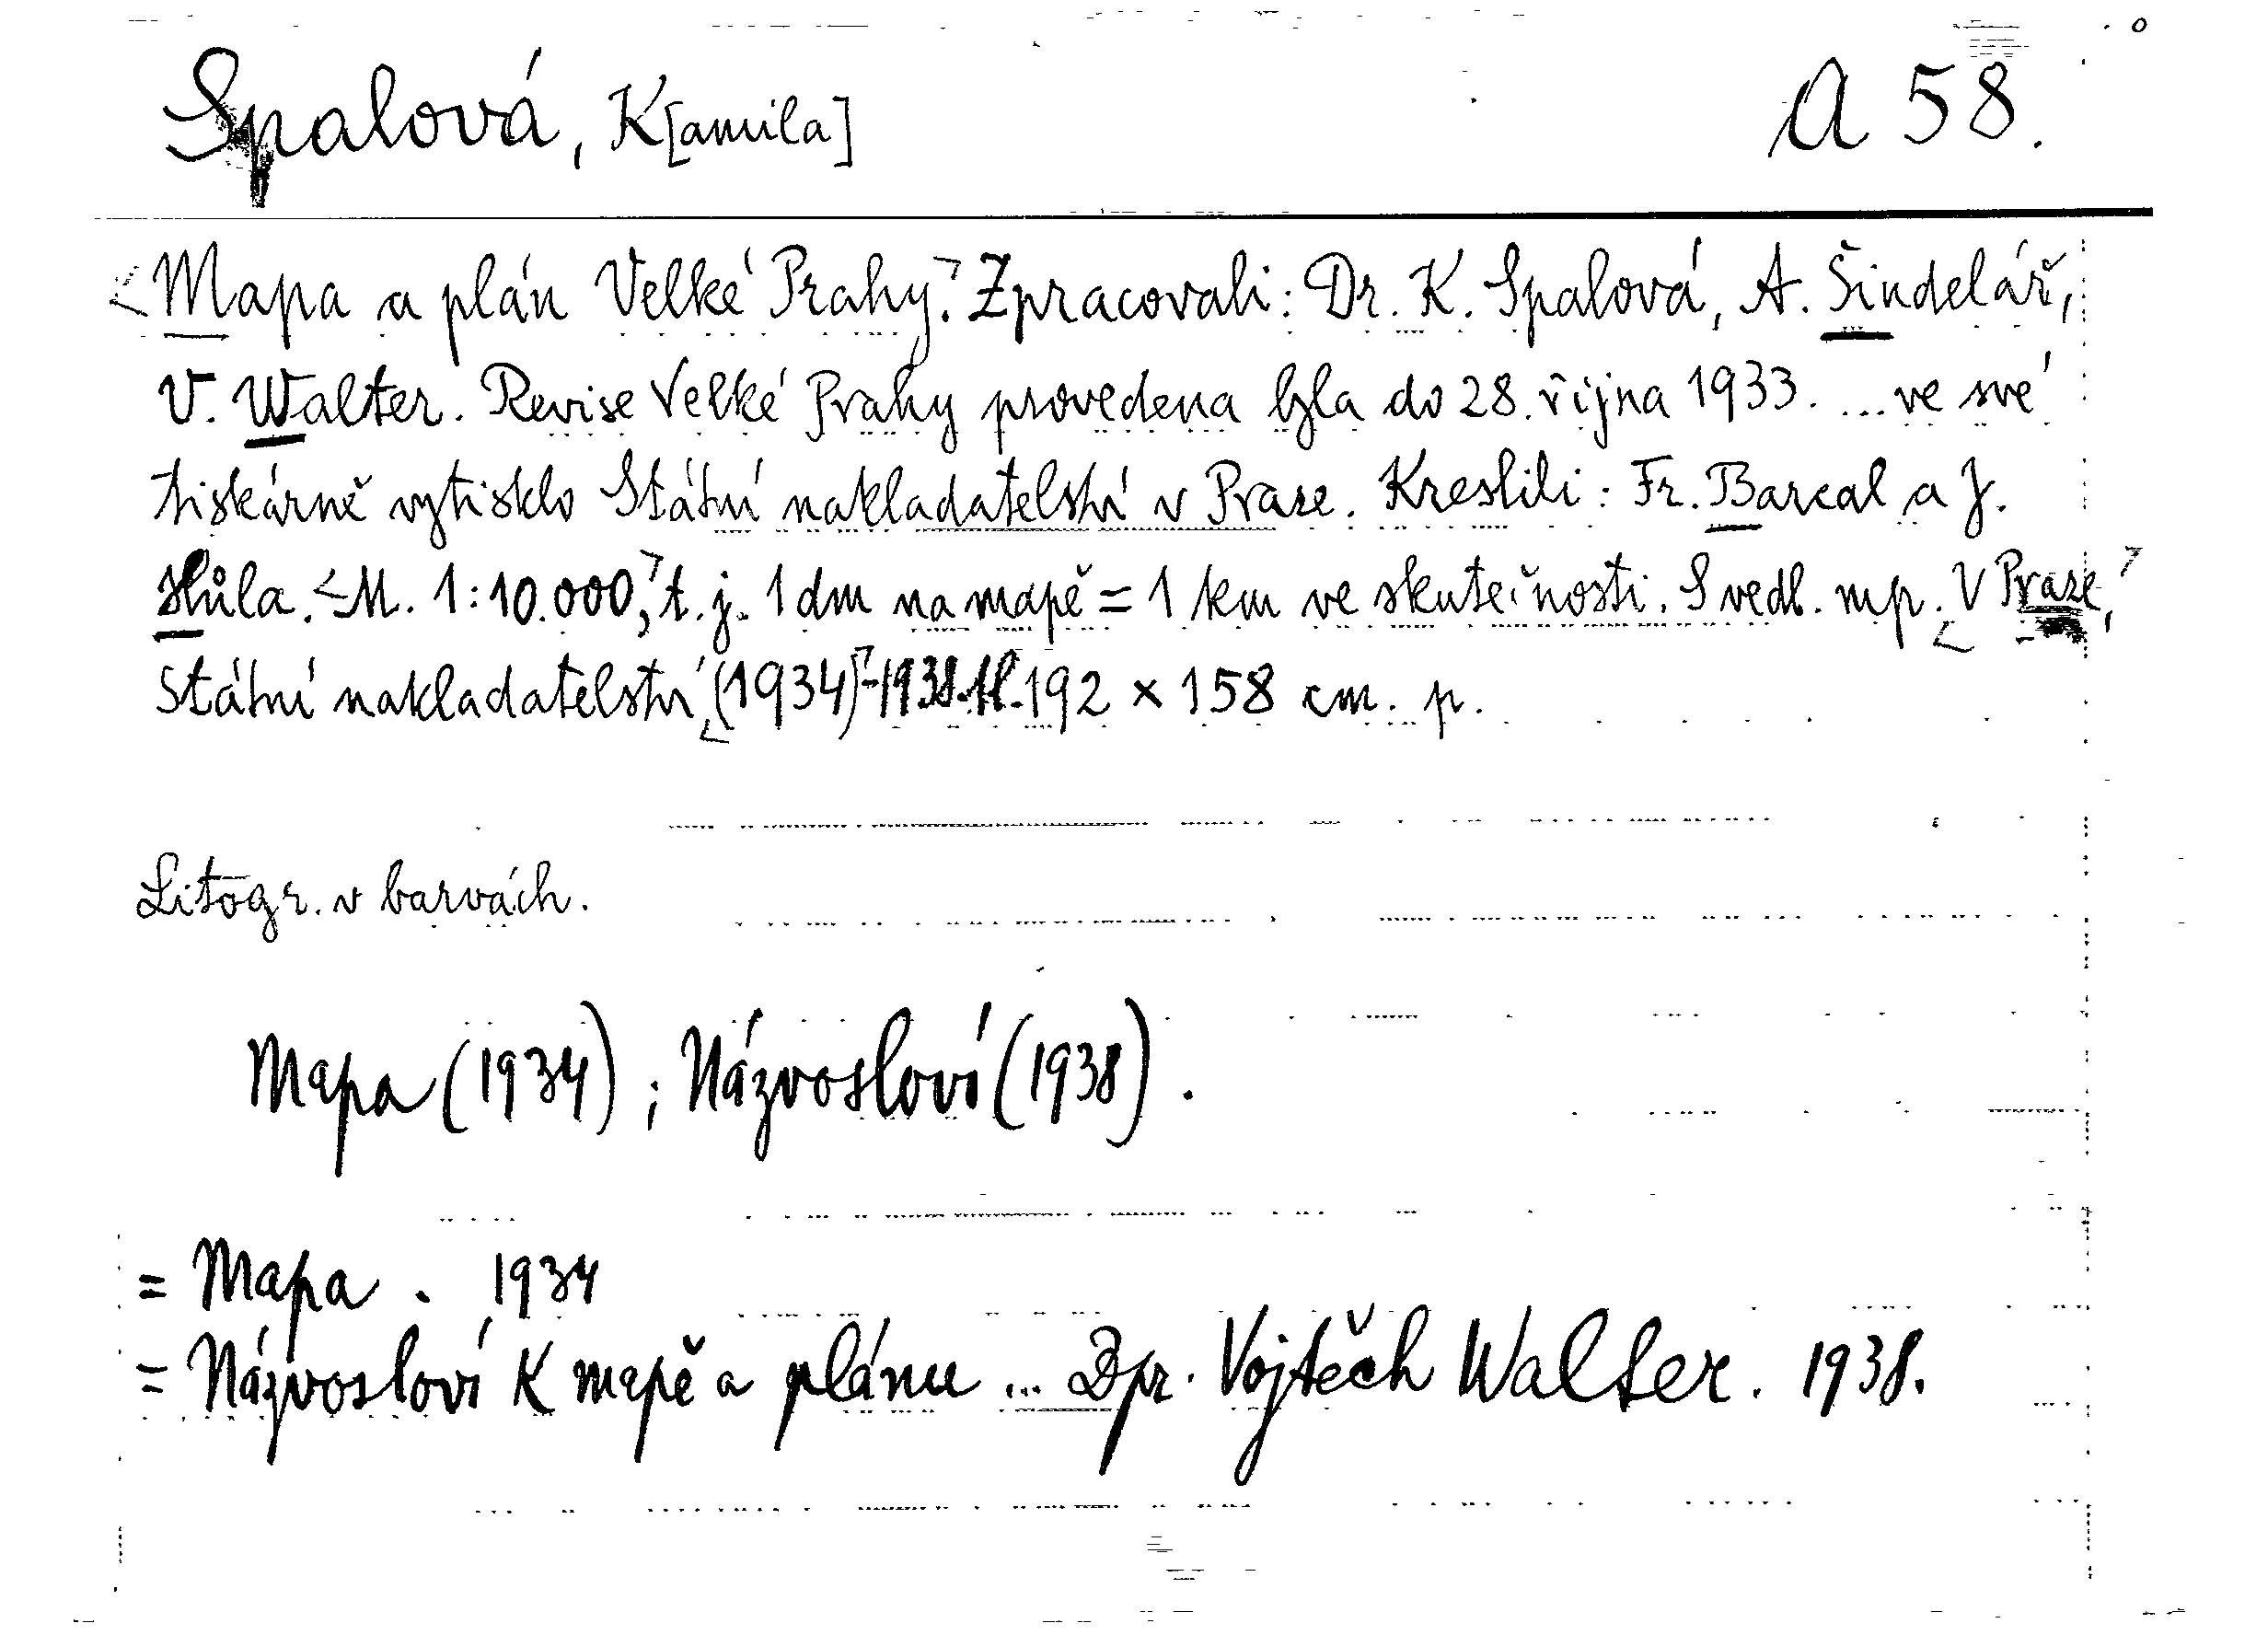 Spalová, K[amila] A 58.
<Mapa a plán Velké Prahy.> Zpracovali: Dr. K. Spalová, A. Šindelář,
V. Walter. Revise Velké Prahy provedena byla do 28. října 1933. ... ve své
tiskárně vytisklo Státní nakladatelství v Praze. Kreslili: Fr. Barcal a J.
Hůla. <M. 1:10.000,> t. j. 1 dm na mapě = 1 km ve skutečnosti. S vedl. mp. <V Praze,>
Státní nakladatelství, <(1934)>-1938. 192 × 158 cm. p.
Litogr. v barvách.
Mapa (1934) ; Názvosloví (1938).
= Mapa . 1934
= Názvosloví K mapě a plánu ... Dpr. Vojtěch Walter. 1938.